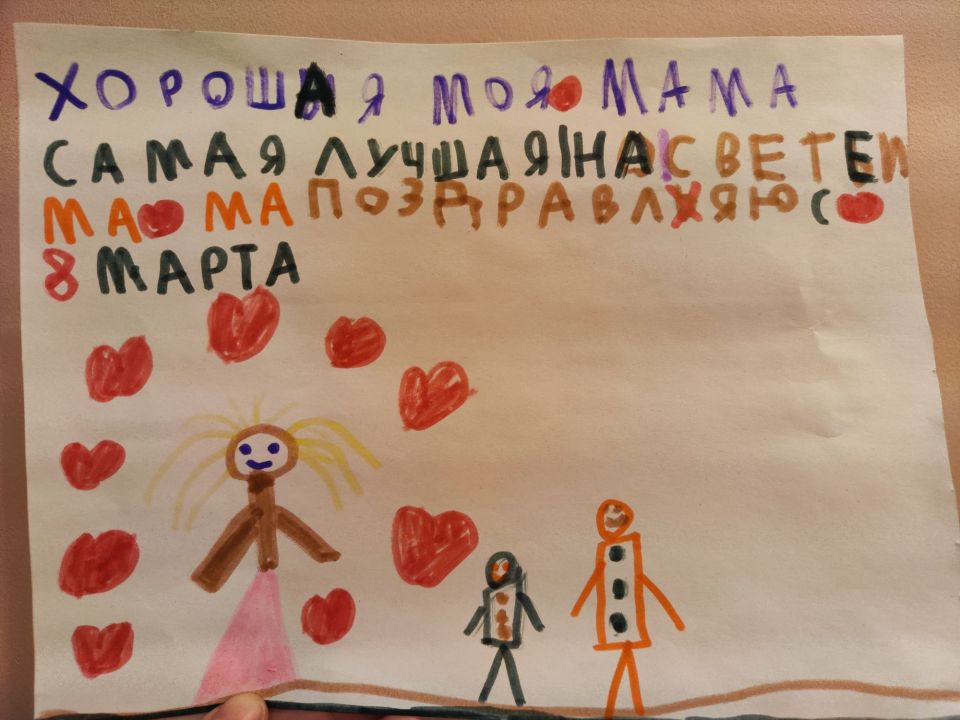 ХОРОШАЯ МОЯ МАМА
САМАЯ ЛУЧШАЯ|НА|СВЕТЕ И
МА МА ПОЗДРАВЛЯЮ С
8 МАРТА